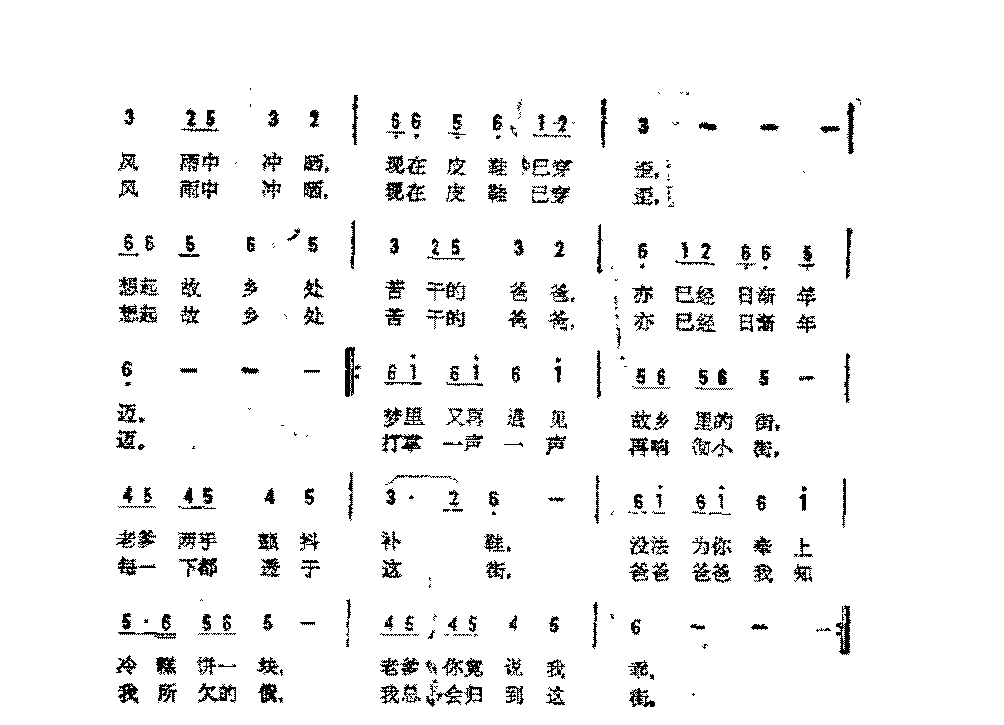 3 2 5 3 2 | 6 6 5 6 1 2 | 3 - - - |
风 雨中 冲 晒, 现在 皮 鞋 已穿 歪,
风 雨中 冲 晒, 现在 皮 鞋 已穿 歪,
6 6 5 6 5 | 3 2 5 3 2 | 6 1 2 6 6 5 |
想起 故 乡 处 苦 干的 爸 爸, 亦 已经 日渐 年
想起 故 乡 处 苦 干的 爸 爸, 亦 已经 日渐 年
6 - - - 6 i 6 i 6 i | 5 6 5 6 5 - |
迈。 梦里 又再 遇 见 故乡 里的 街,
迈。 打掌 一声 一 声 再响 街小 街,
4 5 4 5 4 5 | 3 · 2 6 - | 6 i 6 i 6 i |
老爹 两手 颤 抖 补 鞋, 没法 为你 奉 上
每一 下都 透 于 这 街, 爸爸 爸爸 我 知
5 · 6 5 6 5 - | 4 5 4 5 4 5 | 6 - - -
冷 糕 饼一 块, 老爹 你宽 说 我 乖,
我 所 欠的 假, 我总 会归 到 这 街。